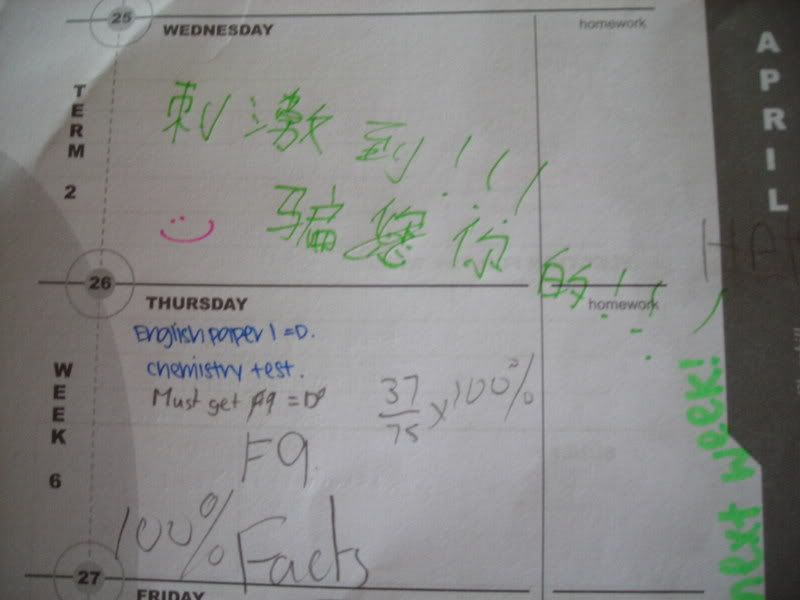 25
WEDNESDAY
homework
APRIL
TERM 2
刺激到!!!
骗您你的!!!
26
THURSDAY
homework
English paper 1 =D.
chemistry test.
Must get F9 =D
37/75 x 100%
F9.
WEEK 6
100% Facts
next week!
27
FRIDAY